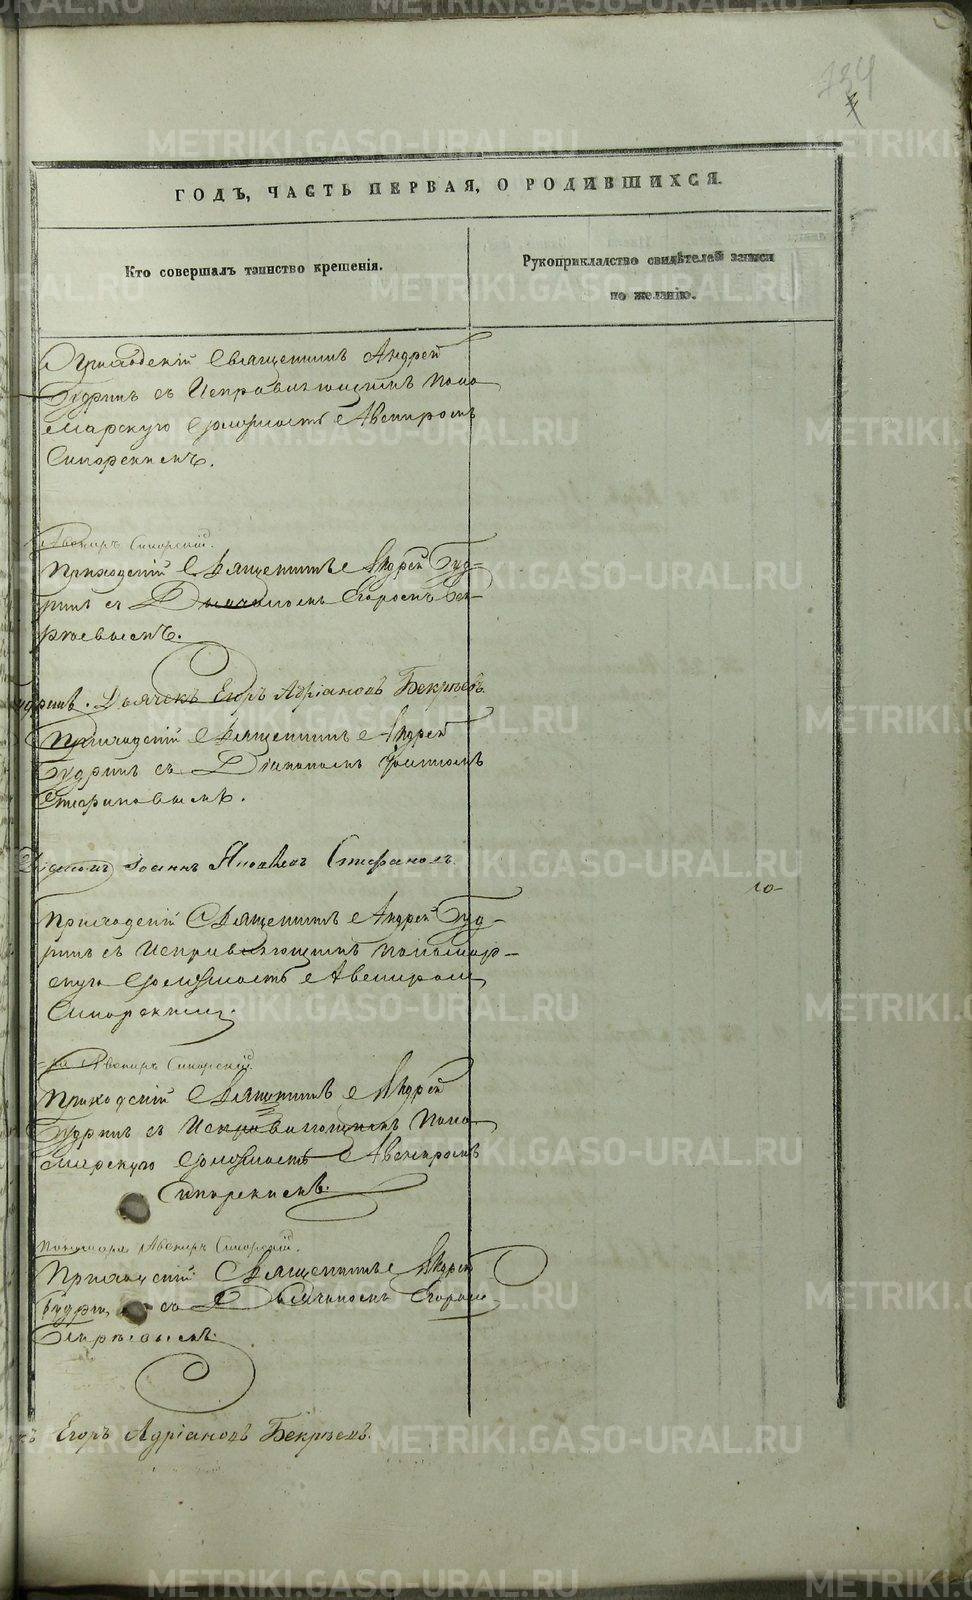 134
ГОДЪ, ЧАСТЬ ПЕРВАЯ, О РОДИВШИХСЯ.
Кто совершалъ таинство крещенія.
Рукоприкладство свидѣтелей записи
по желанію.
Приходскій Священникъ Андрей
Будринъ съ Исправляющимъ поно
марскую должность Авениромъ
Сикорскимъ.
Авениръ Сикорскій.
Приходскій Священникъ Андрей Буд-
ринъ съ Дьячкомъ Егоромъ Бек-
рѣевымъ.
Дьячекъ Егоръ Адріановъ Бекрѣевъ.
Приходскій Священникъ Андрей
Будринъ съ Діакономъ Іоанномъ
Стефановымъ.
Діаконъ Іоаннъ Яковлевъ Стефановъ.
Приходскій Священникъ Андрей Буд-
ринъ съ Исправляющимъ пономар-
скую должность Авениромъ
Сикорскимъ.
Авениръ Сикорскій.
Приходскій Священникъ Андрей
Будринъ съ Исправляющимъ Поно
марскую должность Авениромъ
Сикорскимъ.
пономаря Авениръ Сикорскій.
Приходскій Священникъ Андрей
Будри съ Дьячкомъ Егоромъ
Бекрѣевымъ.
Егоръ Адріановъ Бекрѣевъ.
METRIKI.GASO-URAL.RU